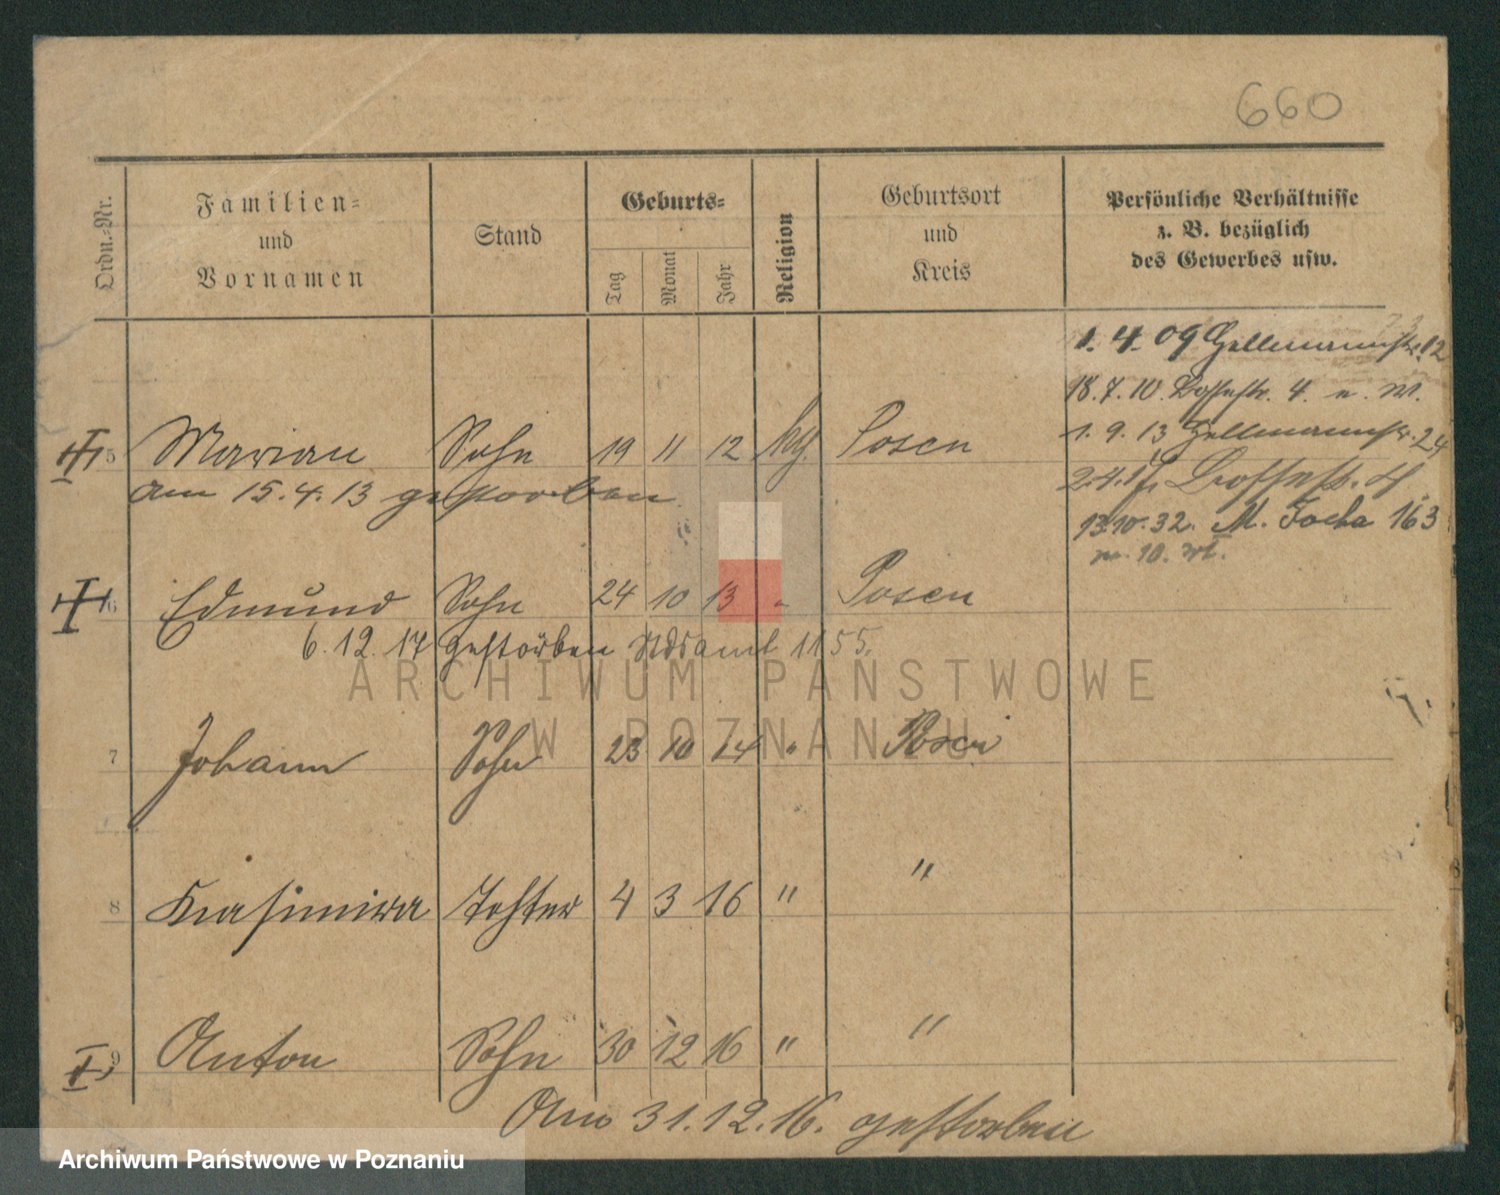 660
Ordn.-Nr.
Familien-
und
Vornamen
Stand
Geburts-
Tag
Monat
Jahr
Religion
Geburtsort
und
Kreis
Persönliche Verhältnisse
z. B. bezüglich
des Gewerbes usw.
1. 4. 09 Hellmannstr. 12
18. 7. 10. 4. u. W.
1. 9. 13 Hellmannstr. 24
13.10.32. M. Focha 163
m. 10. W.
5 Marian Sohn 19 11 12 kg. Posen
am 15. 4. 13 gestorben
6 Edmund Sohn 24 10 13 " Posen
6. 12. 17 gestorben Stdsamt 1155.
ARCHIWUM PAŃSTWOWE
W POZNANIU
7 Johann Sohn 23 10 14 " Posen
8 Kasimira Tochter 4 3 16 " "
9 Anton Sohn 30 12 16 " "
Am 31. 12. 16. gestorben
Archiwum Państwowe w Poznaniu